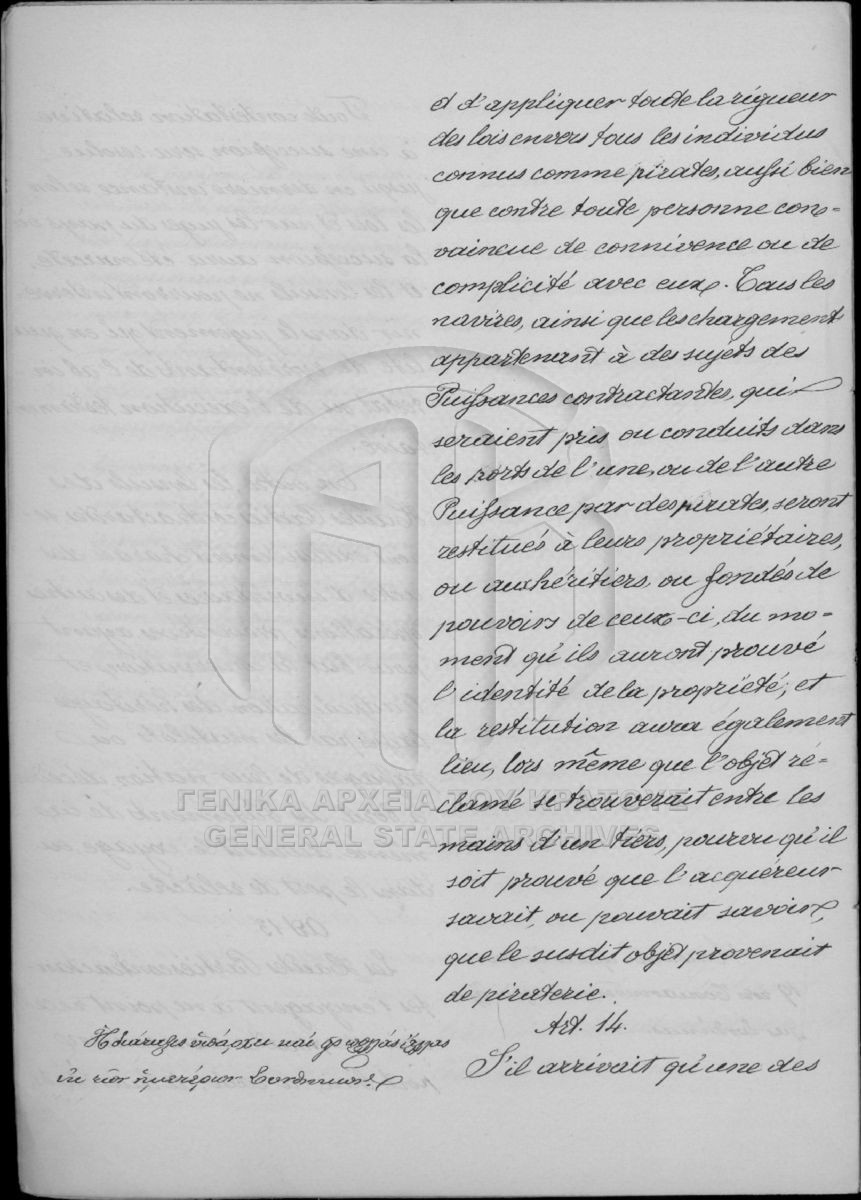 et d'appliquer toute la rigueur
des lois envers tous les individus
connus comme pirates, aussi bien
que contre toute personne con-
vaincue de connivence ou de
complicité avec eux. Tous les
navires, ainsi que les chargements
appartenant à des sujets des
Puissances contractantes, qui
seraient pris ou conduits dans
les ports de l'une, ou de l'autre
Puissance par des pirates, seront
restitués à leurs propriétaires,
ou aux héritiers, ou fondés de
pouvoirs de ceux-ci, du mo-
ment qu'ils auront prouvé
l'identité de la propriété; et
la restitution aura également
lieu, lors même que l'objet ré-
clamé se trouverait entre les
ΓΕΝΙΚΑ ΑΡΧΕΙΑ ΤΟΥ ΚΡΑΤΟΥΣ
GENERAL STATE ARCHIVES
mains d'un tiers, pourvu qu'il
soit prouvé que l'acquéreur
savait, ou pouvait savoir,
que le susdit objet provenait
de piraterie.
Art. 14.
S'il arrivait qu'une des
Ἡ διάταξις ὑπάρχει καὶ
ἡμετέρων